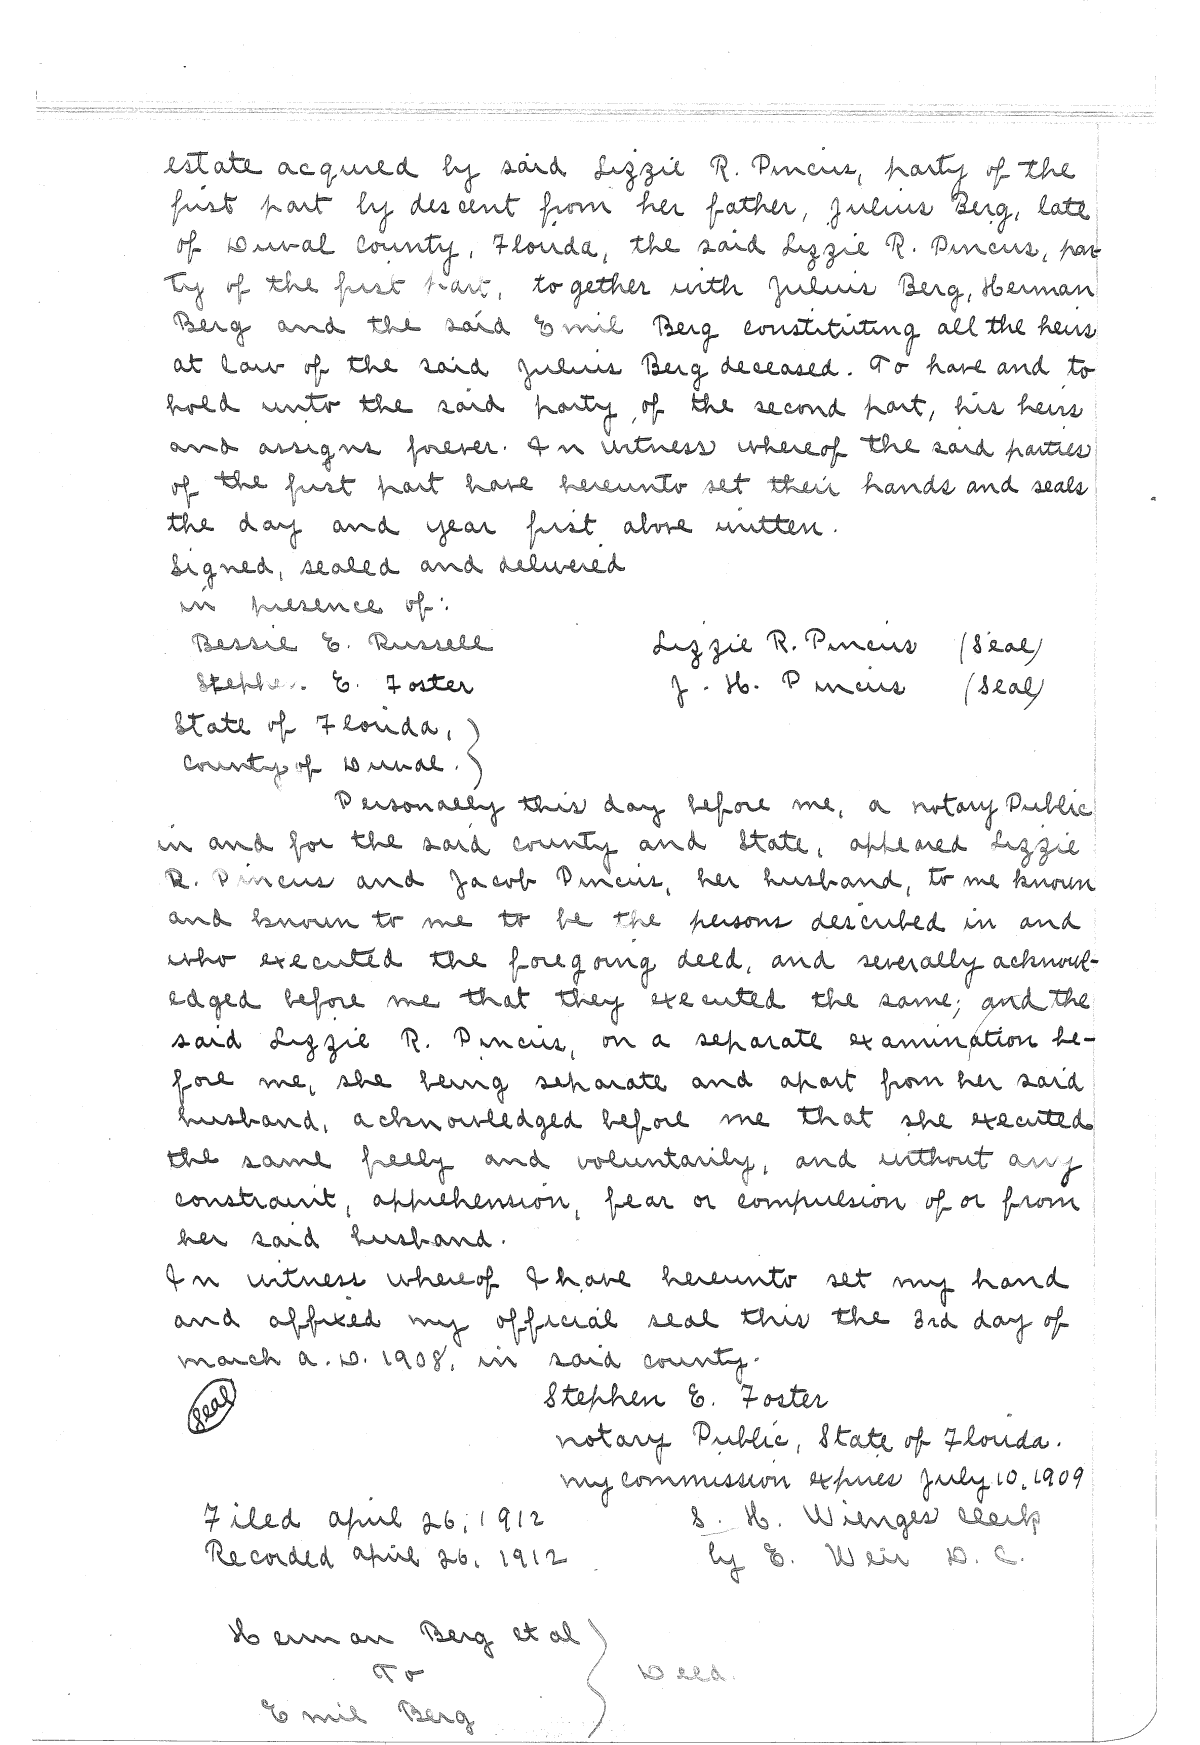 estate acquired by said Lizzie R. Pincus, party of the
first part by descent from her father, Julius Berg, late
of Duval County, Florida, the said Lizzie R. Pincus, par-
ty of the first part, together with Julius Berg, Herman
Berg and the said Emil Berg constituting all the heirs
at law of the said Julius Berg deceased. To have and to
hold unto the said party of the second part, his heirs
and assigns forever. In witness whereof the said parties
of the first part have hereunto set their hands and seals
the day and year first above written.
Signed, sealed and delivered
in presence of:
Bessie E. Russell Lizzie R. Pincus (Seal)
Stephen E. Foster J. H. Pincus (Seal)
State of Florida, }
County of Duval. }
Personally this day before me, a notary Public
in and for the said county and State, appeared Lizzie
R. Pincus and Jacob Pincus, her husband, to me known
and known to me to be the persons described in and
who executed the foregoing deed, and severally acknowl-
edged before me that they executed the same; and the
said Lizzie R. Pincus, on a separate examination be-
fore me, she being separate and apart from her said
husband, acknowledged before me that she executed
the same freely and voluntarily, and without any
constraint, apprehension, fear or compulsion of or from
her said husband.
In witness whereof I have hereunto set my hand
and affixed my official seal this the 3rd day of
march a.D. 1908, in said county.
Seal Stephen E. Foster
notary Public, State of Florida.
my commission expires July 10, 1909
Filed april 26, 1912 S. H. Wienges Clerk
Recorded april 26, 1912 by E. Weir D. C.
Herman Berg et al
To } Deed.
Emil Berg